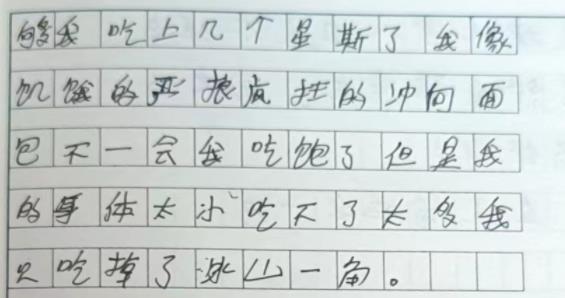 够我吃上几个星斯了我像
饥饿的恶狼疯狂的冲向面
包不一会我吃饱了但是我
的身体太小吃不了太多我
只吃掉了冰山一角。